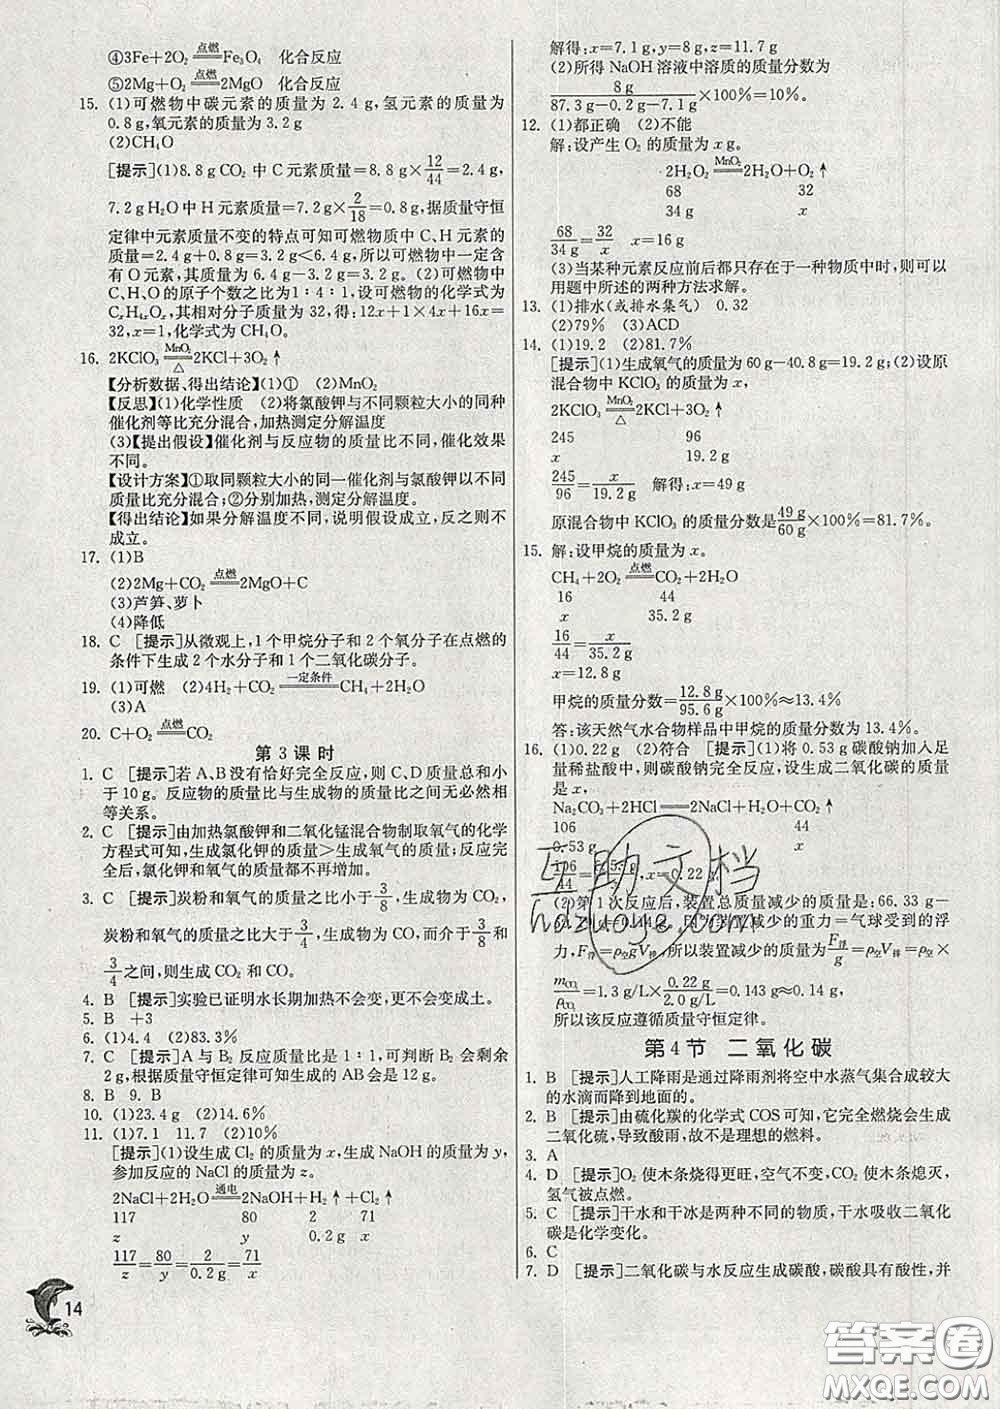 ④3Fe+2O₂ 点燃 Fe₃O₄ 化合反应
⑤2Mg+O₂ 点燃 2MgO 化合反应
15. (1)可燃物中碳元素的质量为 2.4 g,氢元素的质量为
0.8 g,氧元素的质量为 3.2 g
(2)CH₄O
[提示](1)8.8 g CO₂ 中 C 元素质量=8.8 g×12/44=2.4 g,
7.2 g H₂O 中 H 元素质量=7.2 g×2/18=0.8 g,据质量守恒
定律中元素质量不变的特点可知可燃物质中 C、H 元素
质量=2.4 g+0.8 g=3.2 g<6.4 g,所以可燃物中一定含
有 O 元素,其质量为 6.4 g-3.2 g=3.2 g。(2)可燃物中
C、H、O 的原子个数之比为 1∶4∶1,设可燃物的化学式为
CₓH₄ₓOₓ,其相对分子质量为 32,得:12x+1×4x+16x=
32,x=1,化学式为 CH₄O。
16. 2KClO₃ MnO₂ △ 2KCl+3O₂↑
【分析数据、得出结论】(1)① (2)MnO₂
【反思】(1)化学性质 (2)将氯酸钾与不同颗粒大小的同种
催化剂等比充分混合,加热测定分解温度
(3)【提出假设】催化剂与反应物的质量比不同,催化效果
不同。
【设计方案】①取同颗粒大小的同一催化剂与氯酸钾以不同
质量比充分混合;②分别加热,测定分解温度。
【得出结论】如果分解温度不同,说明假设成立,反之则不
成立。
17. (1)B
(2)2Mg+CO₂ 点燃 2MgO+C
(3)芦笋、萝卜
(4)降低
18. C [提示]从微观上,1 个甲烷分子和 2 个氧分子在点燃的
条件下生成 2 个水分子和 1 个二氧化碳分子。
19. (1)可燃 (2)4H₂+CO₂ 一定条件 CH₄+2H₂O
(3)A
20. C+O₂ 点燃 CO₂
第 3 课时
1. C [提示]若 A、B 没有恰好完全反应,则 C、D 质量总和小
于 10 g。反应物的质量比与生成物的质量比间无必然相
等关系。
2. C [提示]由加热氯酸钾和二氧化锰混合物制取氧气的化学
方程式可知,生成氯化钾的质量>生成氧气的质量;反应完
全后,氯化钾和氧气的质量都不再增加。
3. C [提示]炭粉和氧气的质量之比小于 3/8,生成物为 CO₂,
炭粉和氧气的质量之比大于 3/4,生成物为 CO,而介于 3/8 和
3/4 之间,则生成 CO₂ 和 CO。
4. B [提示]实验已证明水长期加热不会变,更不会变成土。
5. B +3
6. (1)4.4 (2)83.3%
7. C [提示]A 与 B₂ 反应质量比是 1∶1,可判断 B₂ 会剩余
2 g;根据质量守恒定律可知生成的 AB 会是 12 g。
8. B 9. B
10. (1)23.4 g (2)14.6%
11. (1)7.1 11.7 (2)10%
[提示](1)设生成 Cl₂ 的质量为 x,生成 NaOH 的质量为 y,
参加反应的 NaCl 的质量为 z。
2NaCl+2H₂O 通电 2NaOH+H₂↑+Cl₂↑
117 80 2 71
z y 0.2 g x
117/z=80/y=2/0.2 g=71/x
14
解得:x=7.1 g,y=8 g,z=11.7 g
(2)所得 NaOH 溶液中溶质的质量分数为
8 g/(87.3 g-0.2 g-7.1 g)×100%=10%
12. (1)都正确 (2)不能
解:设产生 O₂ 的质量为 x g。
2H₂O₂ MnO₂ 2H₂O+O₂↑
68 32
34 g x
68/34 g=32/x x=16 g
(3)当某种元素反应前后都只存在于一种物质中时,则可以
用题中所述的两种方法求解。
13. (1)排水(或排水集气) 0.32
(2)79% (3)ACD
14. (1)19.2 (2)81.7%
[提示](1)生成氧气的质量为 60 g-40.8 g=19.2 g;(2)设原
混合物中 KClO₃ 的质量为 x,
2KClO₃ MnO₂ △ 2KCl+3O₂↑
245 96
x 19.2 g
245/96=x/19.2 g 解得:x=49 g
原混合物中 KClO₃ 的质量分数是 49 g/60 g×100%=81.7%。
15. 解:设甲烷的质量为 x。
CH₄+2O₂ 点燃 CO₂+2H₂O
16 44
x 35.2 g
16/44=x/35.2 g
x=12.8 g
甲烷的质量分数=12.8 g/95.6 g×100%≈13.4%
答:该天然气水合物样品中甲烷的质量分数为 13.4%。
16. (1)0.22 g (2)符合 [提示](1)将 0.53 g 碳酸钠加入足
量稀盐酸中,则碳酸钠完全反应,设生成二氧化碳的质量
是 x,
Na₂CO₃+2HCl══2NaCl+H₂O+CO₂↑
106 44
0.53 g x
106/44=0.53 g/x,x=0.22 g
(2)第 1 次反应后,装置总质量减少的质量为:66.33 g-
因为装置减少的重力=气球受到的浮
力,F浮=ρ空gV排,所以装置减少的质量为 F浮/g=ρ空V排=ρ空×
mCO₂/ρCO₂=1.3 g/L×0.22 g/2.0 g/L=0.143 g≈0.14 g,
所以该反应遵循质量守恒定律。
第 4 节 二氧化碳
1. B [提示]人工降雨是通过降雨剂将空中水蒸气集合成较大
的水滴而降到地面的。
2. B [提示]由硫化羰的化学式 COS 可知,它完全燃烧会生成
二氧化硫,导致酸雨,故不是理想的燃料。
3. A
4. D [提示]O₂ 使木条烧得更旺,空气不变,CO₂ 使木条熄灭,
氢气被点燃。
5. C [提示]干水和干冰是两种不同的物质,干水吸收二氧化
碳是化学变化。
6. C
7. D [提示]二氧化碳与水反应生成碳酸,碳酸具有酸性,并
互助文档
hdzuoye.com
答案圈
MXQE.COM